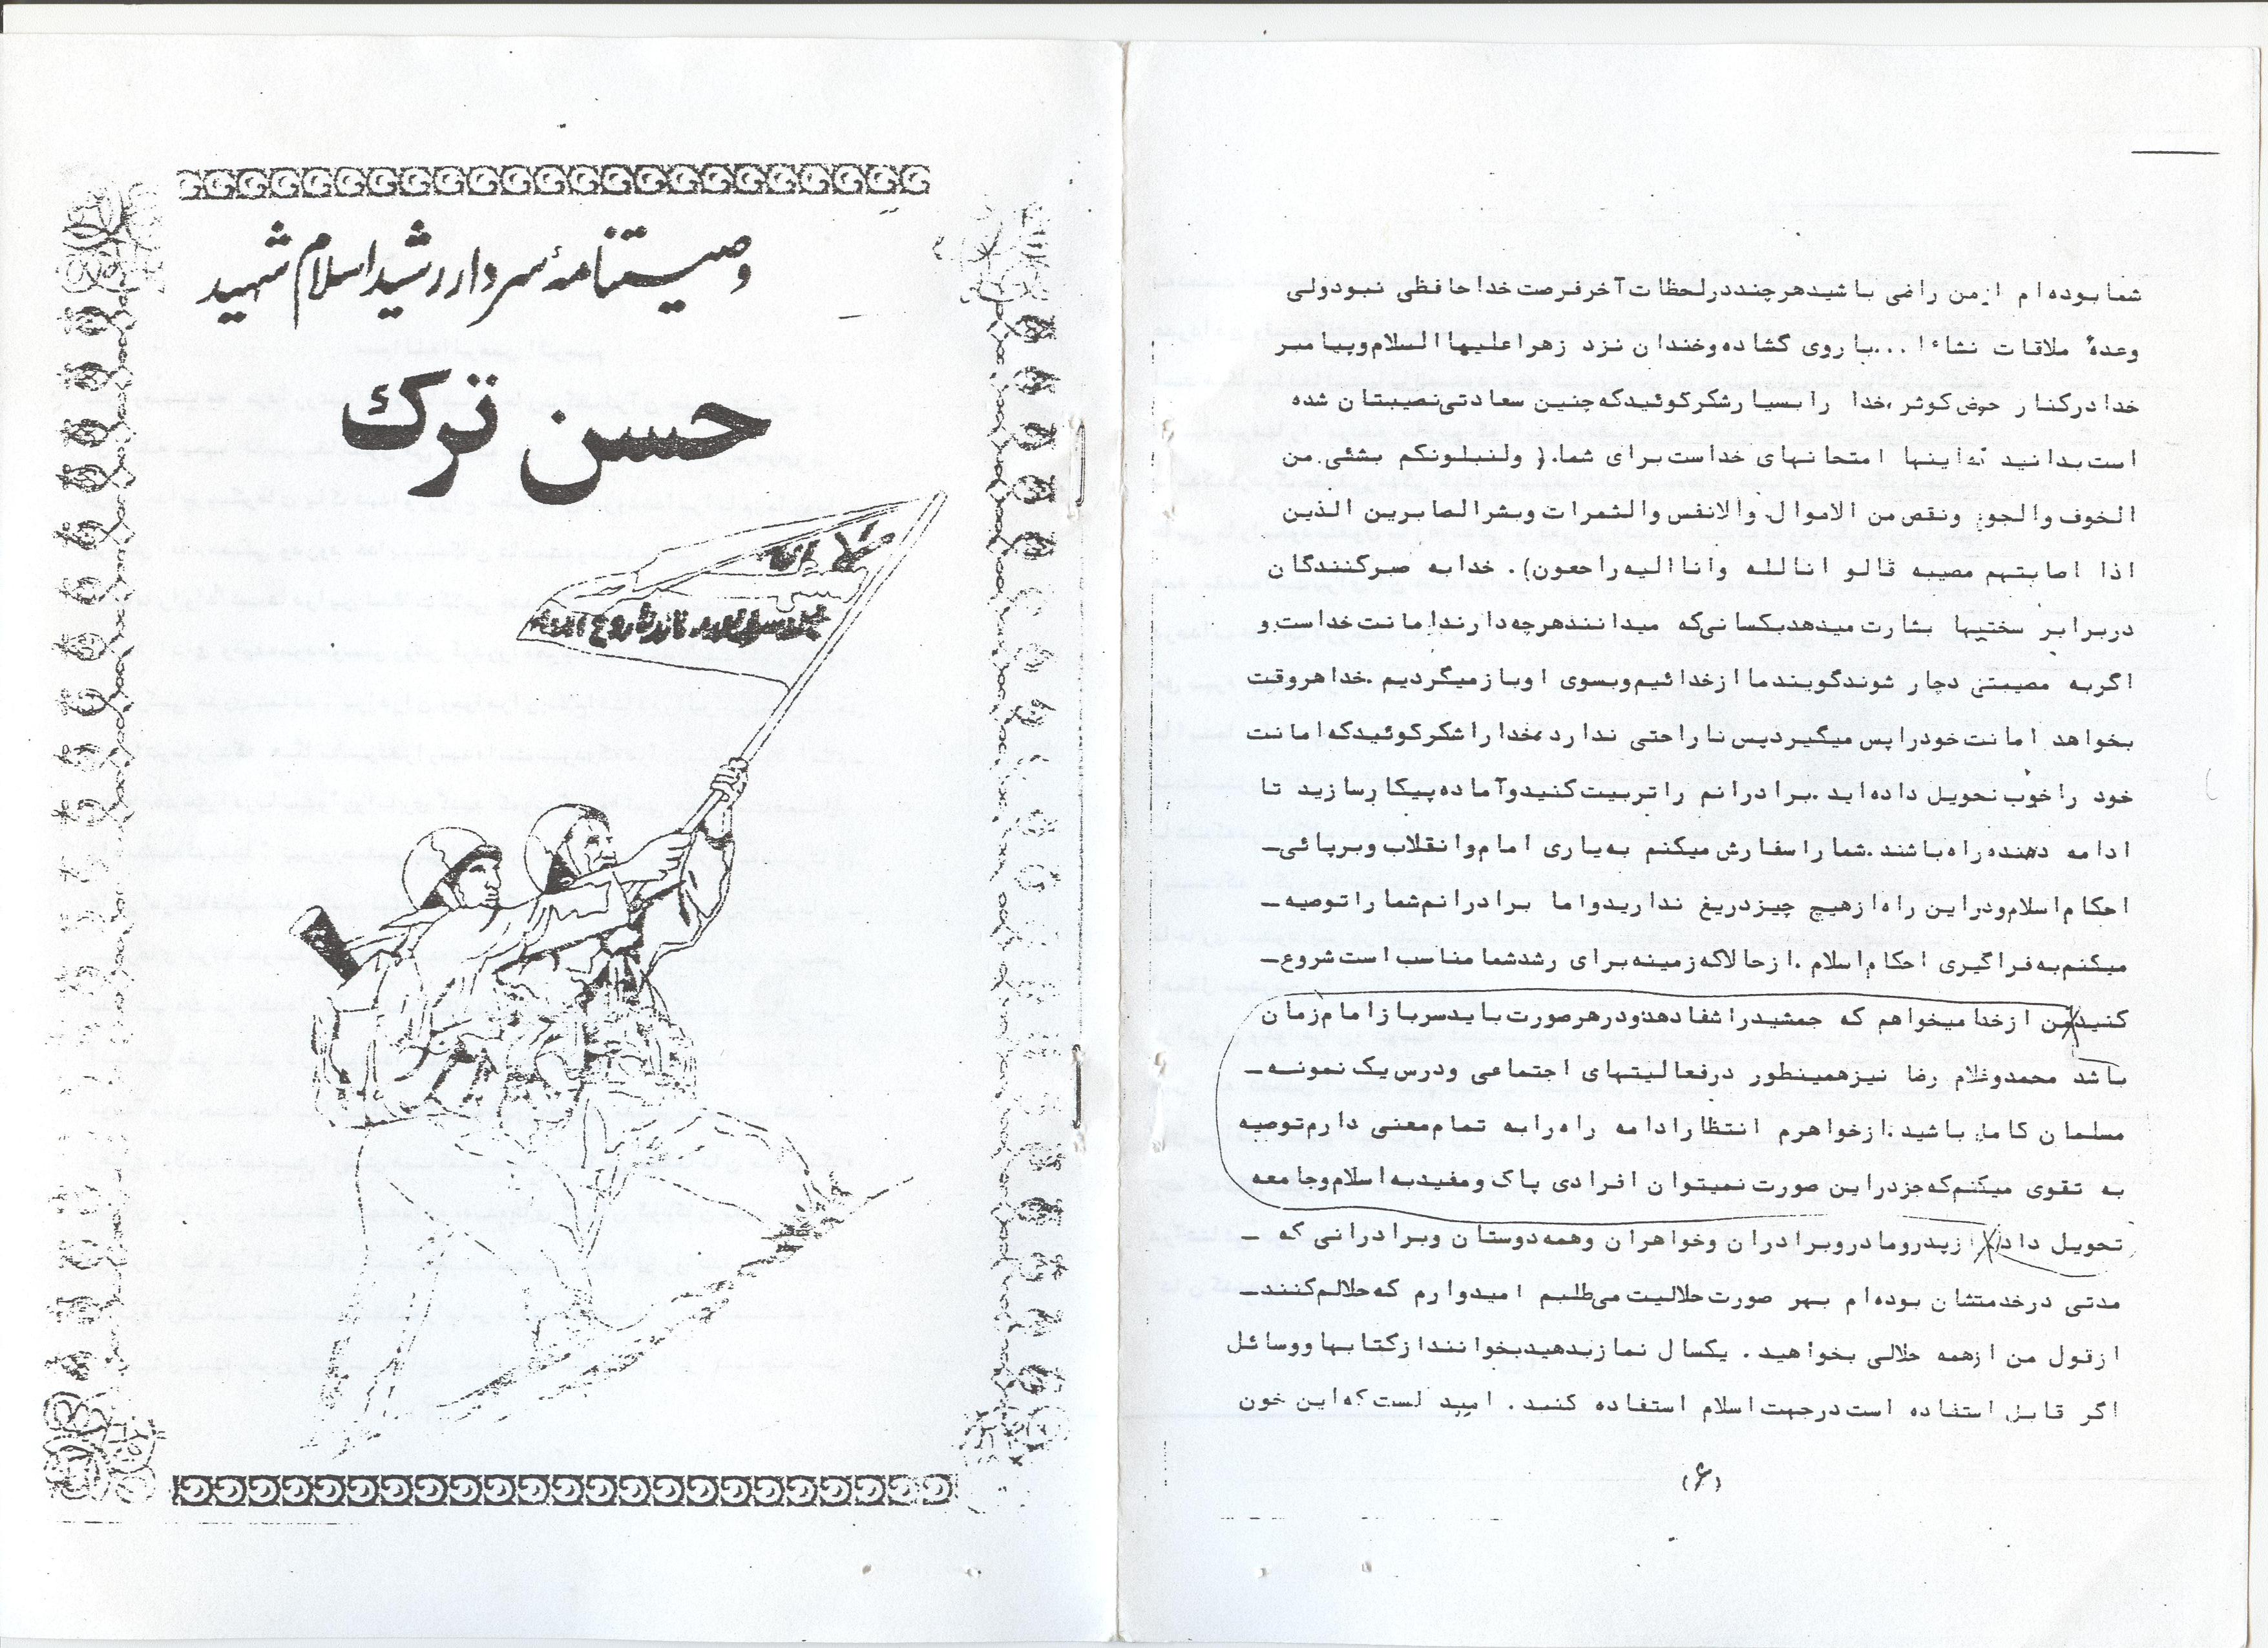 وصیتنامهٔ سردار رشید اسلام شهید
حسن ترک
لا اله
شما بوده‌ام از من راضی باشید هرچند در لحظات آخر فرصت خداحافظی نبود ولی
وعدهٔ ملاقات نشاءا... با روی گشاده و خندان نزد زهرا علیها السلام و پیامبر
خدا در کنار حوض کوثر، خدا را بسیار شکر گوئید که چنین سعادتی نصیبتان شده
است بدانید که اینها امتحانهای خداست برای شما. ( ولنبلونکم بشئی من
الخوف والجوع ونقص من الاموال والانفس والثمرات وبشر الصابرین الذین
اذا اصابتهم مصیبه قالو انالله وانا الیه راجعون). خدا به صبرکنندگان
در برابر سختیها بشارت میدهد بکسانی‌که میدانند هرچه دارند امانت خداست و
اگر به مصیبتی دچار شوند گویند ما از خدائیم و بسوی او باز میگردیم .خدا هروقت
بخواهد امانت خود را پس میگیرد پس ناراحتی ندارد، خدا را شکر گوئید که امانت
خود را خوب تحویل داده‌اید .برادرانم را تربیت کنید و آماده پیکار سازید تا
ادامه دهنده راه باشند .شما را سفارش میکنم به یاری امام و انقلاب و برپائی_
احکام اسلام و در این راه از هیچ چیز دریغ ندارید و اما برادرانم شما را توصیه _
میکنم به فراگیری احکام اسلام .از حالا که زمینه برای رشد شما مناسب است شروع_
کنید من از خدا میخواهم که جمشید را شفا دهد و در هر صورت باید سرباز امام زمان
باشد محمد و غلام رضا نیز همینطور در فعالیتهای اجتماعی و درس یک نمونه _
مسلمان کامل باشید .از خواهرم انتظار ادامه راه را به تمام معنی دارم توصیه
به تقوی میکنم که جز در این صورت نمیتوان افرادی پاک و مفید به اسلام و جامعه
تحویل داد از پدر و مادر و برادران و خواهران و همه دوستان و برادرانی که _
مدتی در خدمتشان بوده‌ام بهر صورت حلالیت می‌طلبم امیدوارم که حلالم کنند_
از قول من از همه حلالی بخواهید . یکسال نماز بدهید بخوانند از کتابها و وسائل
اگر قابل استفاده است در جهت اسلام استفاده کنید . امید است که این خون
(۶)